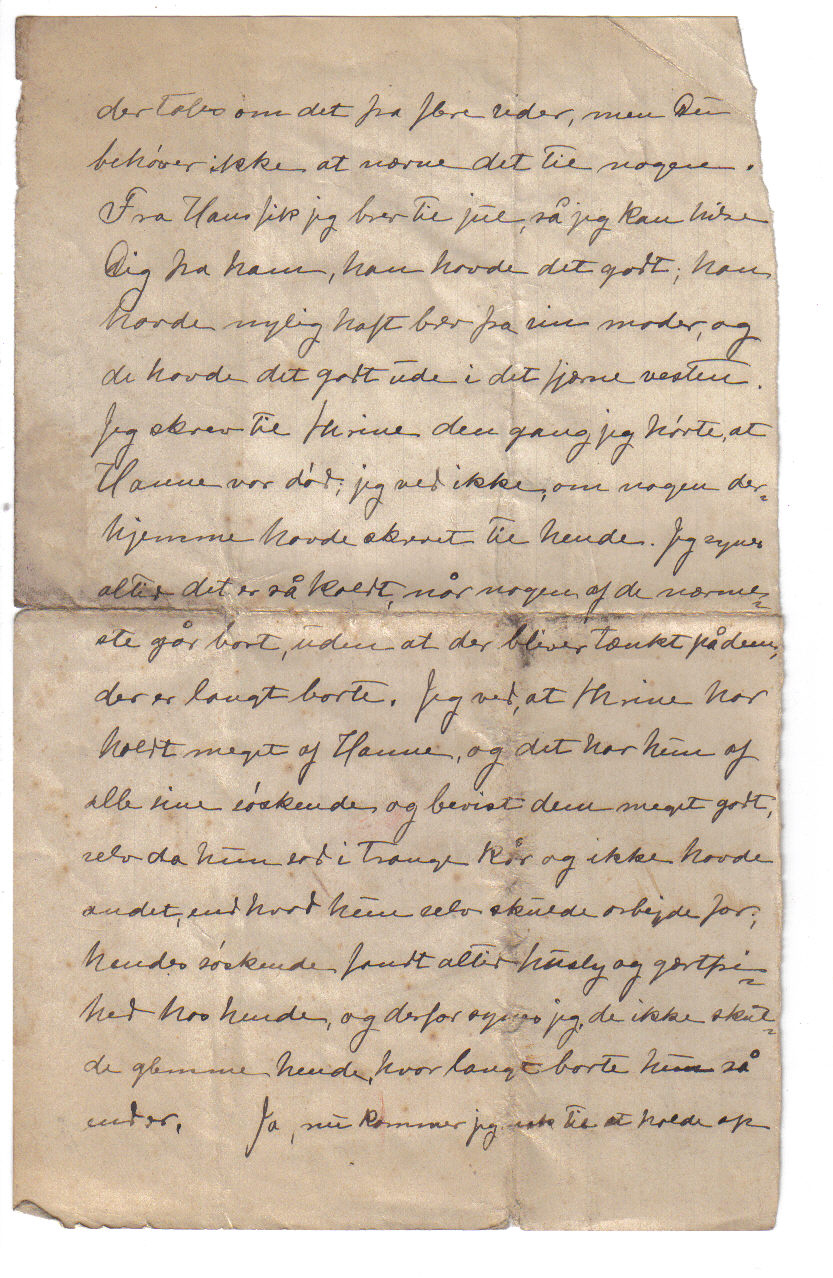 der tales om det fra flere sider, men Du
behøver ikke at nævne det til nogen.
Fra Hans fik jeg brev til jul, så jeg kan hilse
Dig fra ham, han havde det godt; han
havde nylig haft brev fra sin moder, og
de havde det godt ude i det fjærne vesten.
Jeg skrev til Thrine den gang jeg hørte, at
Hanne var død; jeg ved ikke, om nogen der-
hjemme havde skrevet til hende. Jeg synes
altid det er så koldt, når nogen af de nærme-
ste går bort, uden at der bliver tænkt på dem,
der er langt borte. Jeg ved, at Thrine har
holdt meget af Hanne, og det har hun af
alle sine søskende og bevist dem meget godt,
selv da hun sad i trange kår og ikke havde
andet, end hvad hun selv skulde arbejde for;
hendes søskende fandt altid husly og gæstfri-
hed hos hende, og derfor synes jeg, de ikke skul-
de glemme hende, hvor langt borte hun så
end er. Ja, nu kommer jeg nok til at holde op